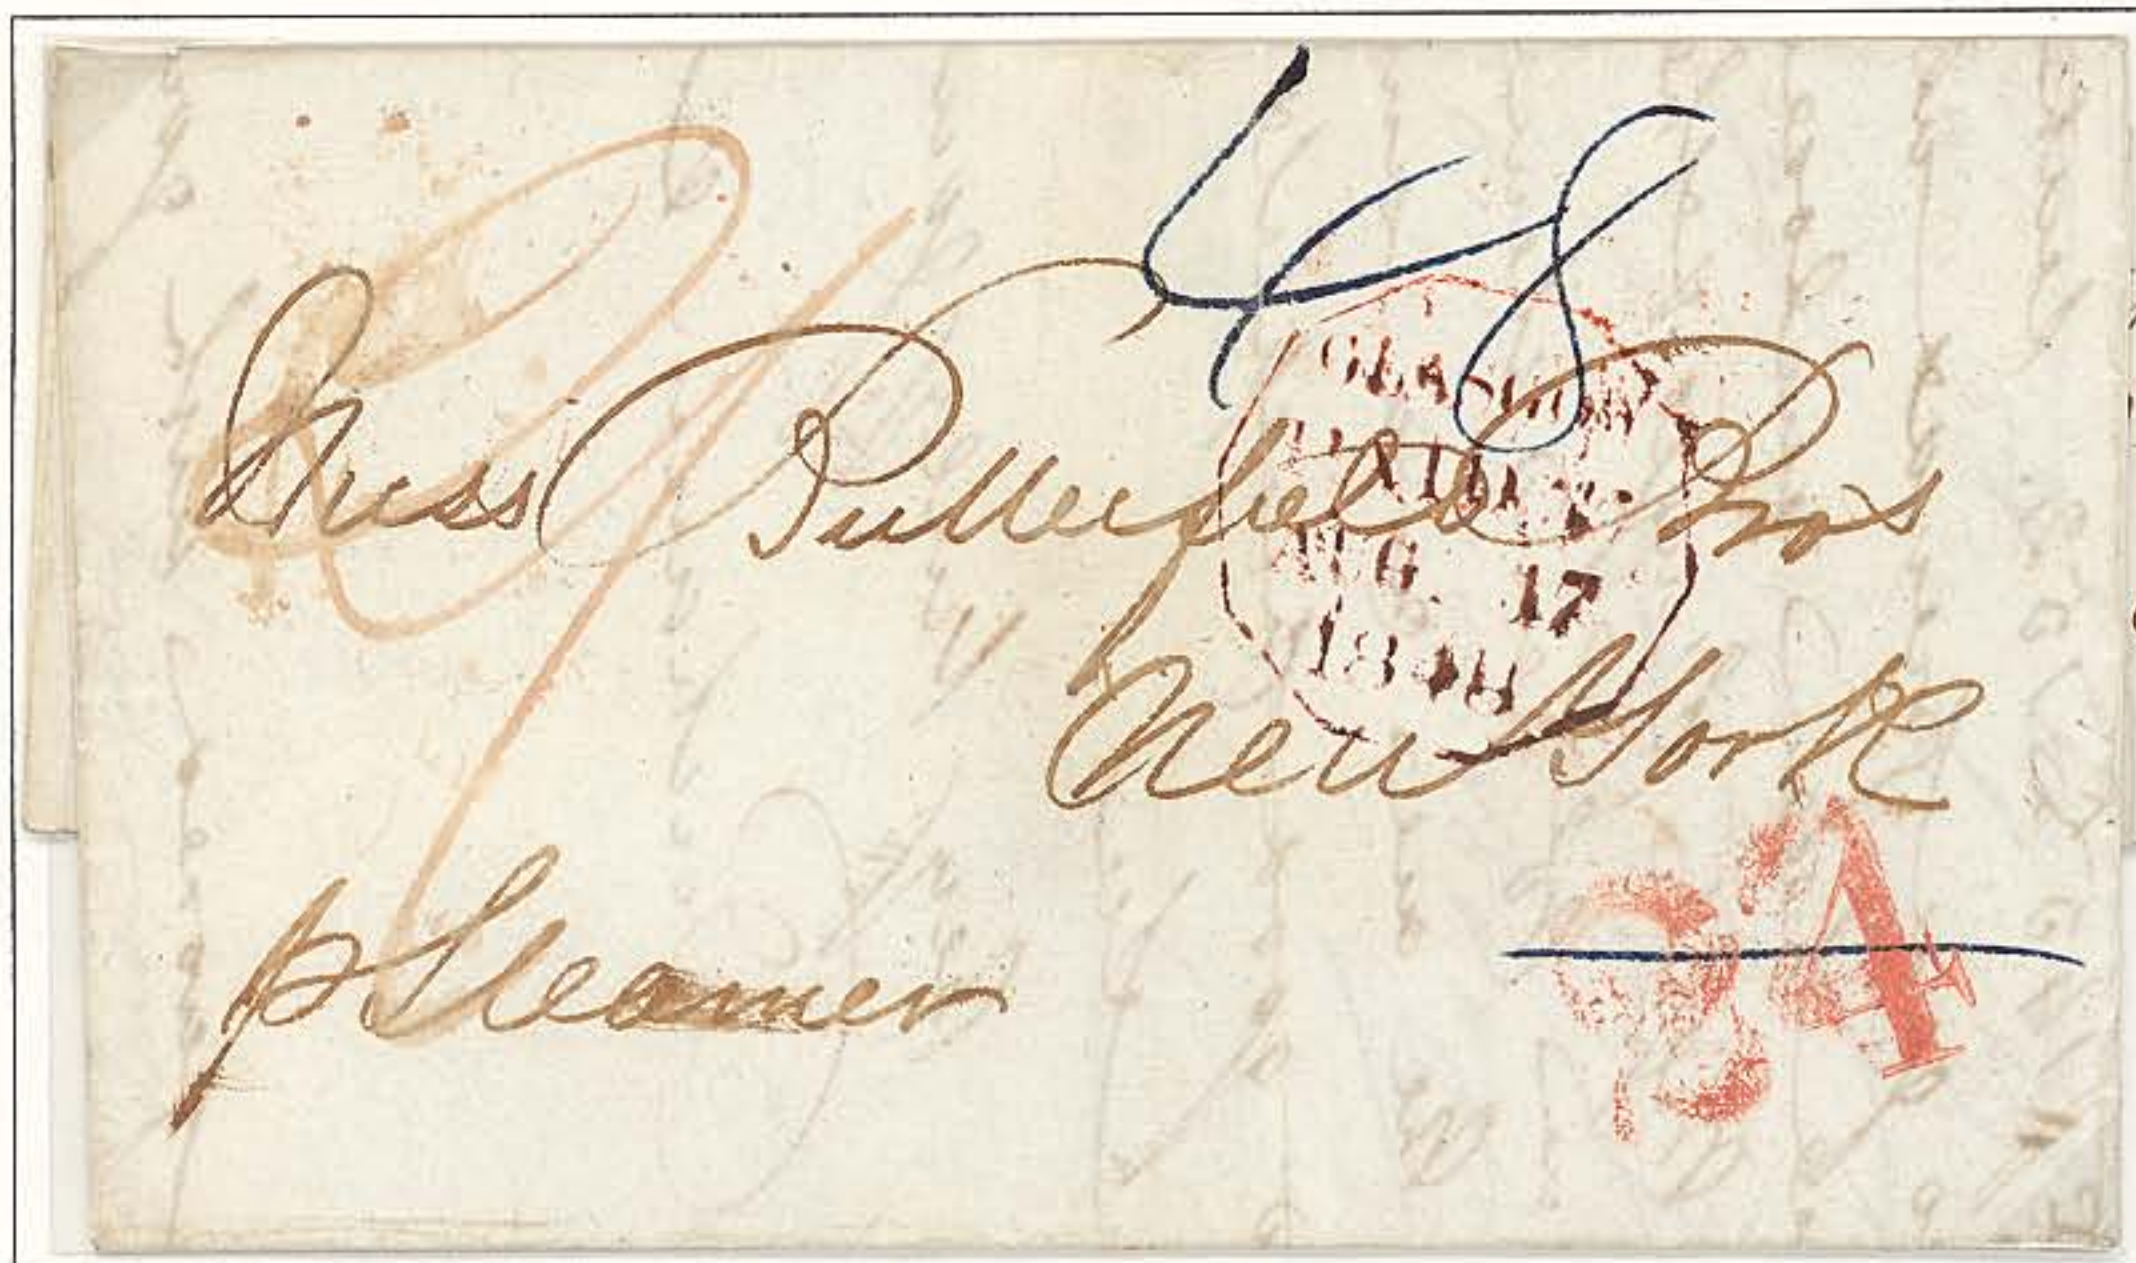 48
2/
Mess Butterfield Bros
GLASGOW
PAID
AUG. 17
1848
New York
p Steamer
24